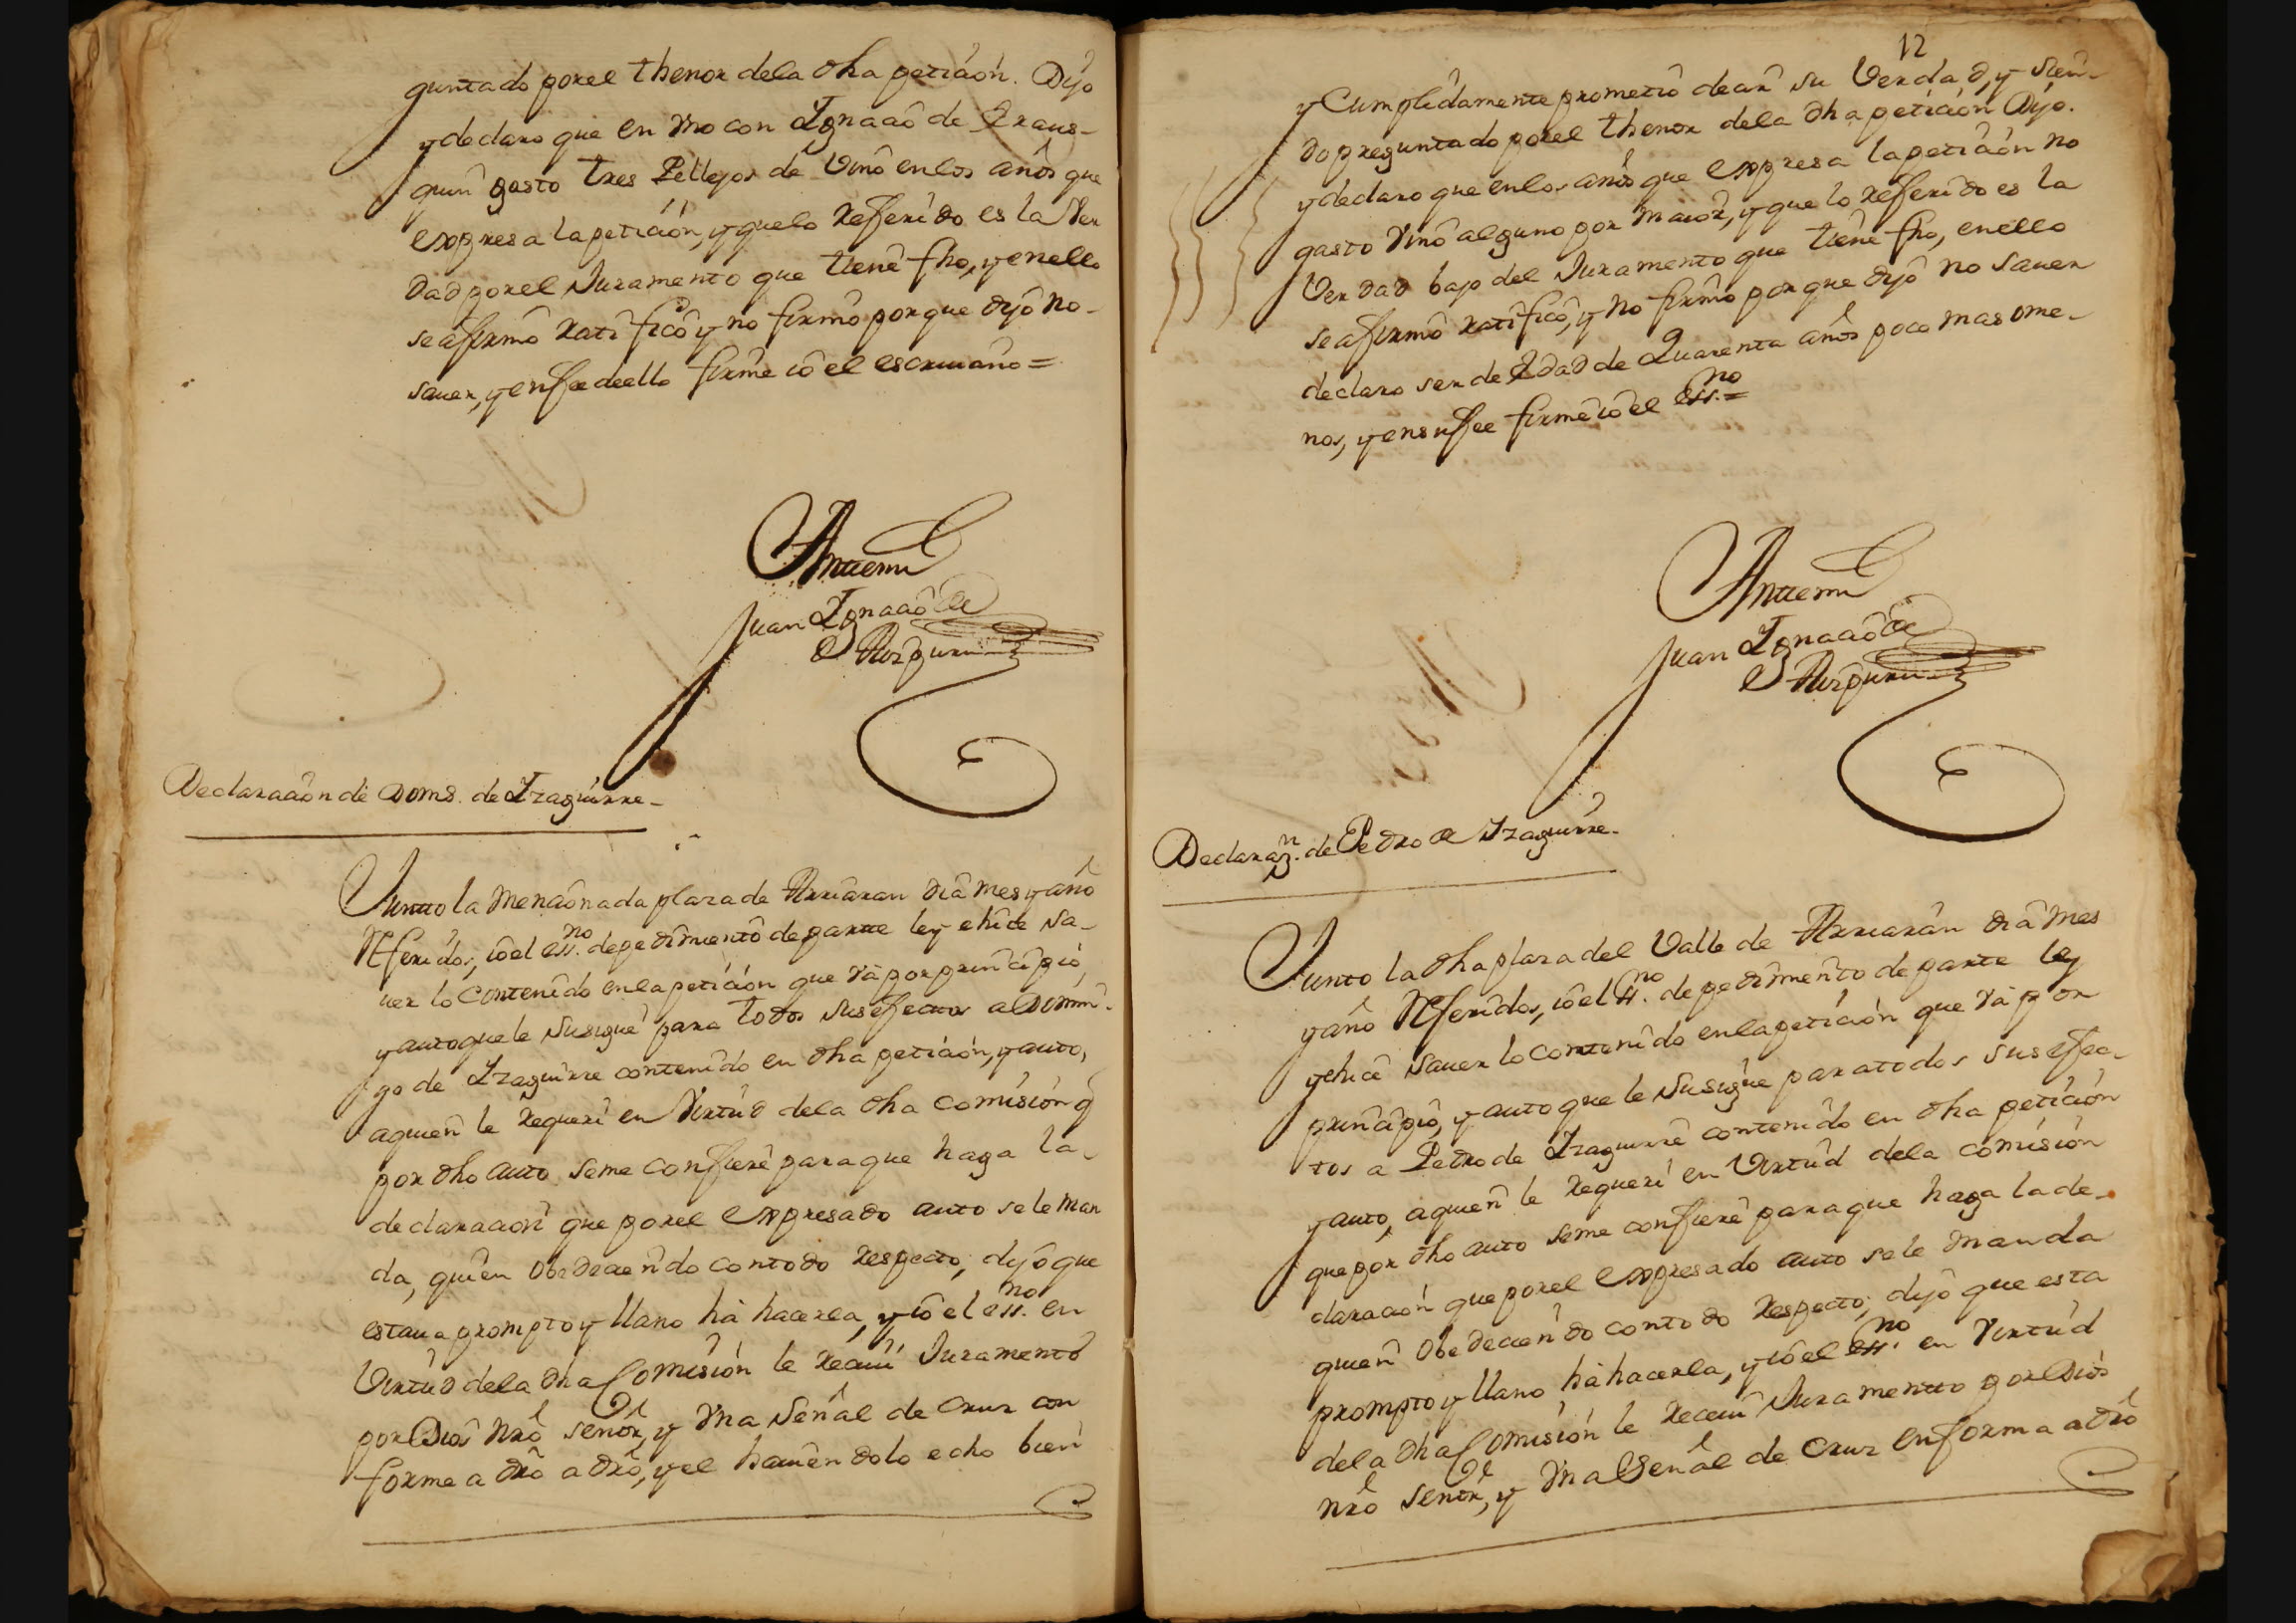 guntado por el thenor dela dha peticion. Dijo
y declaro que en vno con Ignacio de Iraus-
quin gasto tres Pellejos de Vino en los años que
expresa la peticion, y que lo Referido es la Ver
dad por el Juramento que tiene fho, y en ello
se afirmo ratifico y no firmo porque dijo no-
sauer, y en fee de ello firme io el escriuano =
Antemi
Juan Ignacio de
Declaracion de Doms. de Izaguirre-
Juntto la Mencionada plaza de Arriaran dia mes y año
Referidos, io el essno. de pedimiento de partte ley e hice sa-
uer lo contenido en la peticion que va por principio
y auto que le Susigue para todos sus efectos a Domin-
go de Izaguirre contenido en dha peticion, y auto,
a quien le requeri en Virtud dela dha comision q
por dho auto se me confiere para que haga la-
declaracion que por el Expresado auto se le man
da, quien Obedeciendo con todo respecto, dijo que
estaua prompto y llano ha hacerla, y io el essno. en
Virtud dela dha Comision le reciui Juramento
por Dios nro señor, y vna Señal de Cruz con
forme a dro a dro, y el hauiendolo echo bien
12
y Cumplidamente prometio decir su Verdad, y sien-
do preguntado por el thenor dela dha peticion Dijo.
y declaro que en los años que expresa la peticion no
gasto vino alguno por maior, y que lo referido es la
Verdad bajo del Juramento que tiene fho, en ello
se afirmo ratifico, y no firmo porque dijo no sauer
declaro ser de Edad de Quarenta años poco mas ome-
nos, y en su fee firme io el essno. =
Antemi
Juan Ignacio de
Declarazn. de Pedro de Izaguirre.
Junto la dha plaza del Valle de Arriaran dia mes
y año Referidos, io el essno. de pedimento de parte ley
y hice sauer lo contenido en la peticion que va por
principio, y auto que le Susigue para todos sus efec-
tos a Pedro de Izaguirre contenido en dha peticion
y auto, a quien le requeri en Virtud dela comision
que por dho auto se me confiere para que haga la de-
claracion que por el Expresado auto se le manda
quien Obedeciendo con todo respecto, dijo que esta
prompto y llano ha hacerla, y io el essno. en Virtud
dela dha Comision le reciui Juramentto por Dios
nro señor, y vna Señal de Cruz en forma a dro